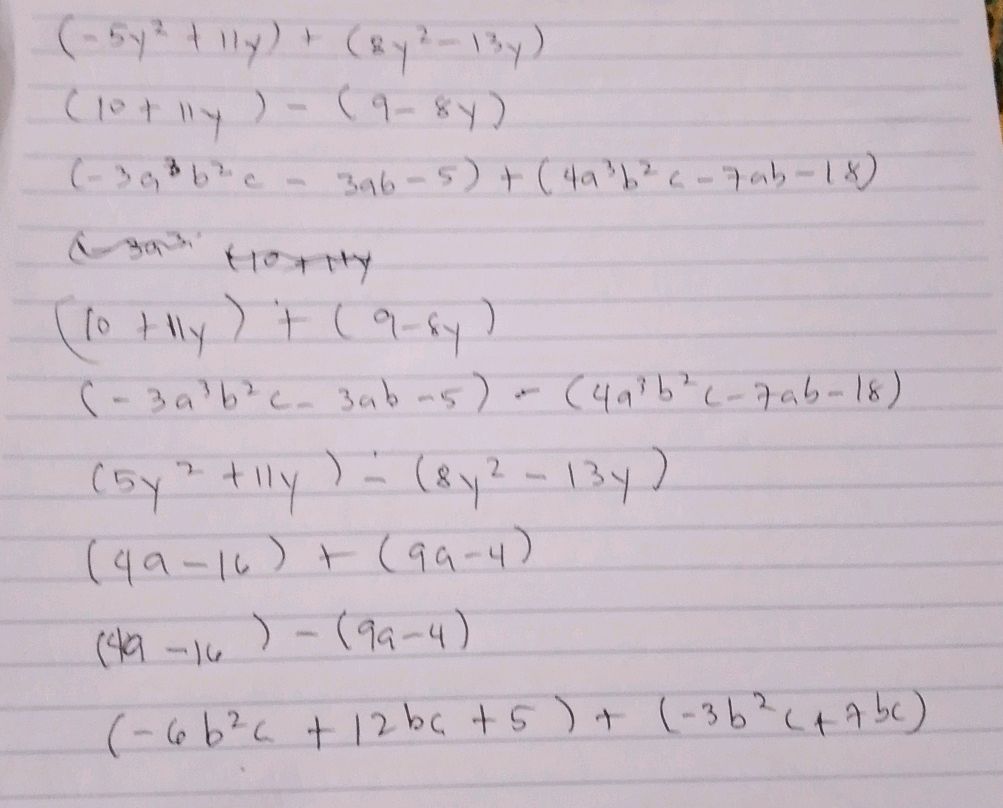 (-5y² + 11y) + (8y² - 13y)
(10 + 11y) - (9 - 8y)
(-3a³b²c - 3ab - 5) + (4a³b²c - 7ab - 18)
(-3a³ (10 + 11y
(10 + 11y) + (9 - 8y)
(-3a³b²c - 3ab - 5) - (4a³b²c - 7ab - 18)
(5y² + 11y) - (8y² - 13y)
(4a - 16) + (9a - 4)
(4a - 16) - (9a - 4)
(-6b²c + 12bc + 5) + (-3b²c + 7bc)